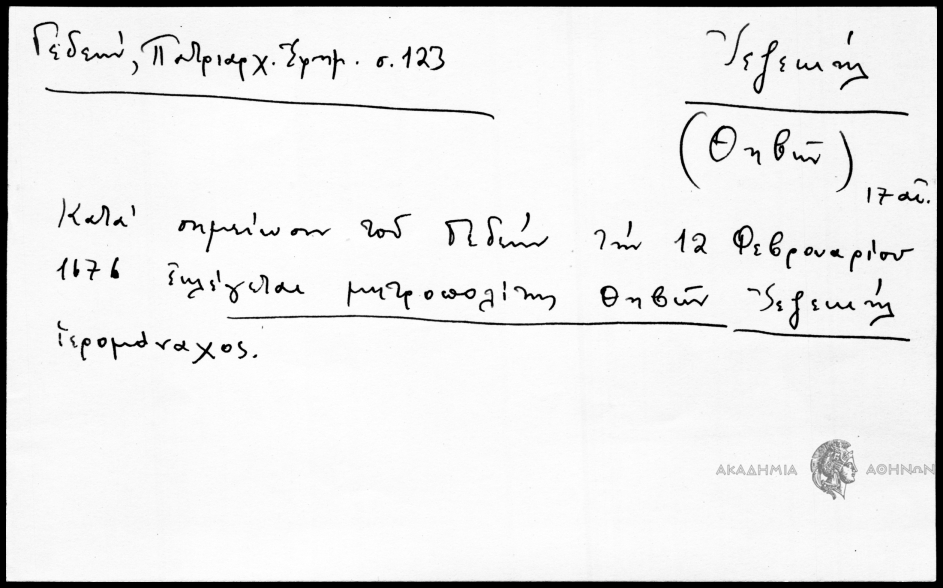 Γεδεών, Πατριαρχ. Ἐφημ. σ. 123
Ἰεζεκιὴλ
(Θηβῶν)
17 αἰ.
Κατὰ σημείωσιν τοῦ Γεδεὼν τὴν 12 Φεβρουαρίου
1676 ἐκλέγεται μητροπολίτης Θηβῶν Ἰεζεκιὴλ
ἱερομόναχος.
ΑΚΑΔΗΜΙΑ ΑΘΗΝΩΝ